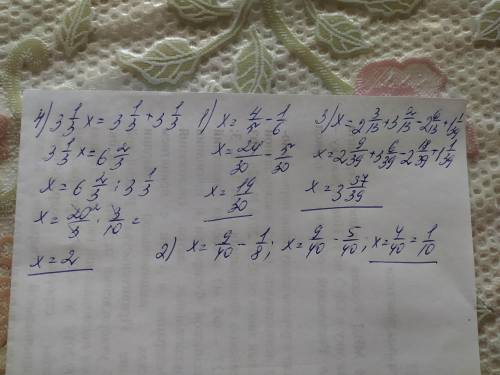 4) 3 1/3 x = 3 1/3 + 3 1/3
3 1/3 x = 6 2/3
x = 6 2/3 : 3 1/3
x = 20/3 · 3/10 =
x = 2
1) x = 4/5 - 1/6
x = 24/30 - 5/30
x = 19/30
3) x = 2 3/13 + 3 2/13 - 2 6/13 + 1 1/39
x = 2 9/39 + 3 6/39 - 2 18/39 + 1 1/39
x = 3 37/39
2) x = 9/40 - 1/8; x = 9/40 - 5/40; x = 4/40 = 1/10